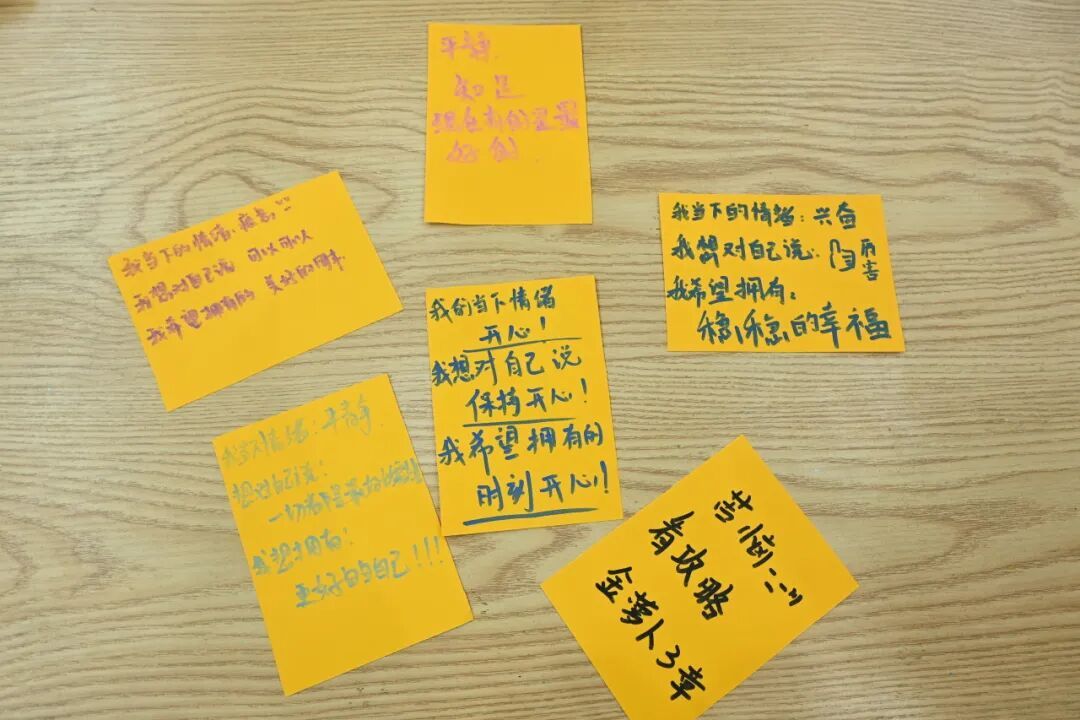 平静.
知足
现在有的是最
好的.
我当下的情绪:疲惫
我想对自己说 可以可以
我希望拥有的 美好的周末
我当下的情绪:兴奋
我想对自己说: 厉害
我希望拥有:
稳稳的幸福
我的当下情绪
开心!
我想对自己说
保持开心!
我希望拥有的
时刻开心!
情绪:平静.
想对自己说:
一切都是最好的
我想拥有:
更好的自己!!!
苦恼
看攻略
金萝卜3章